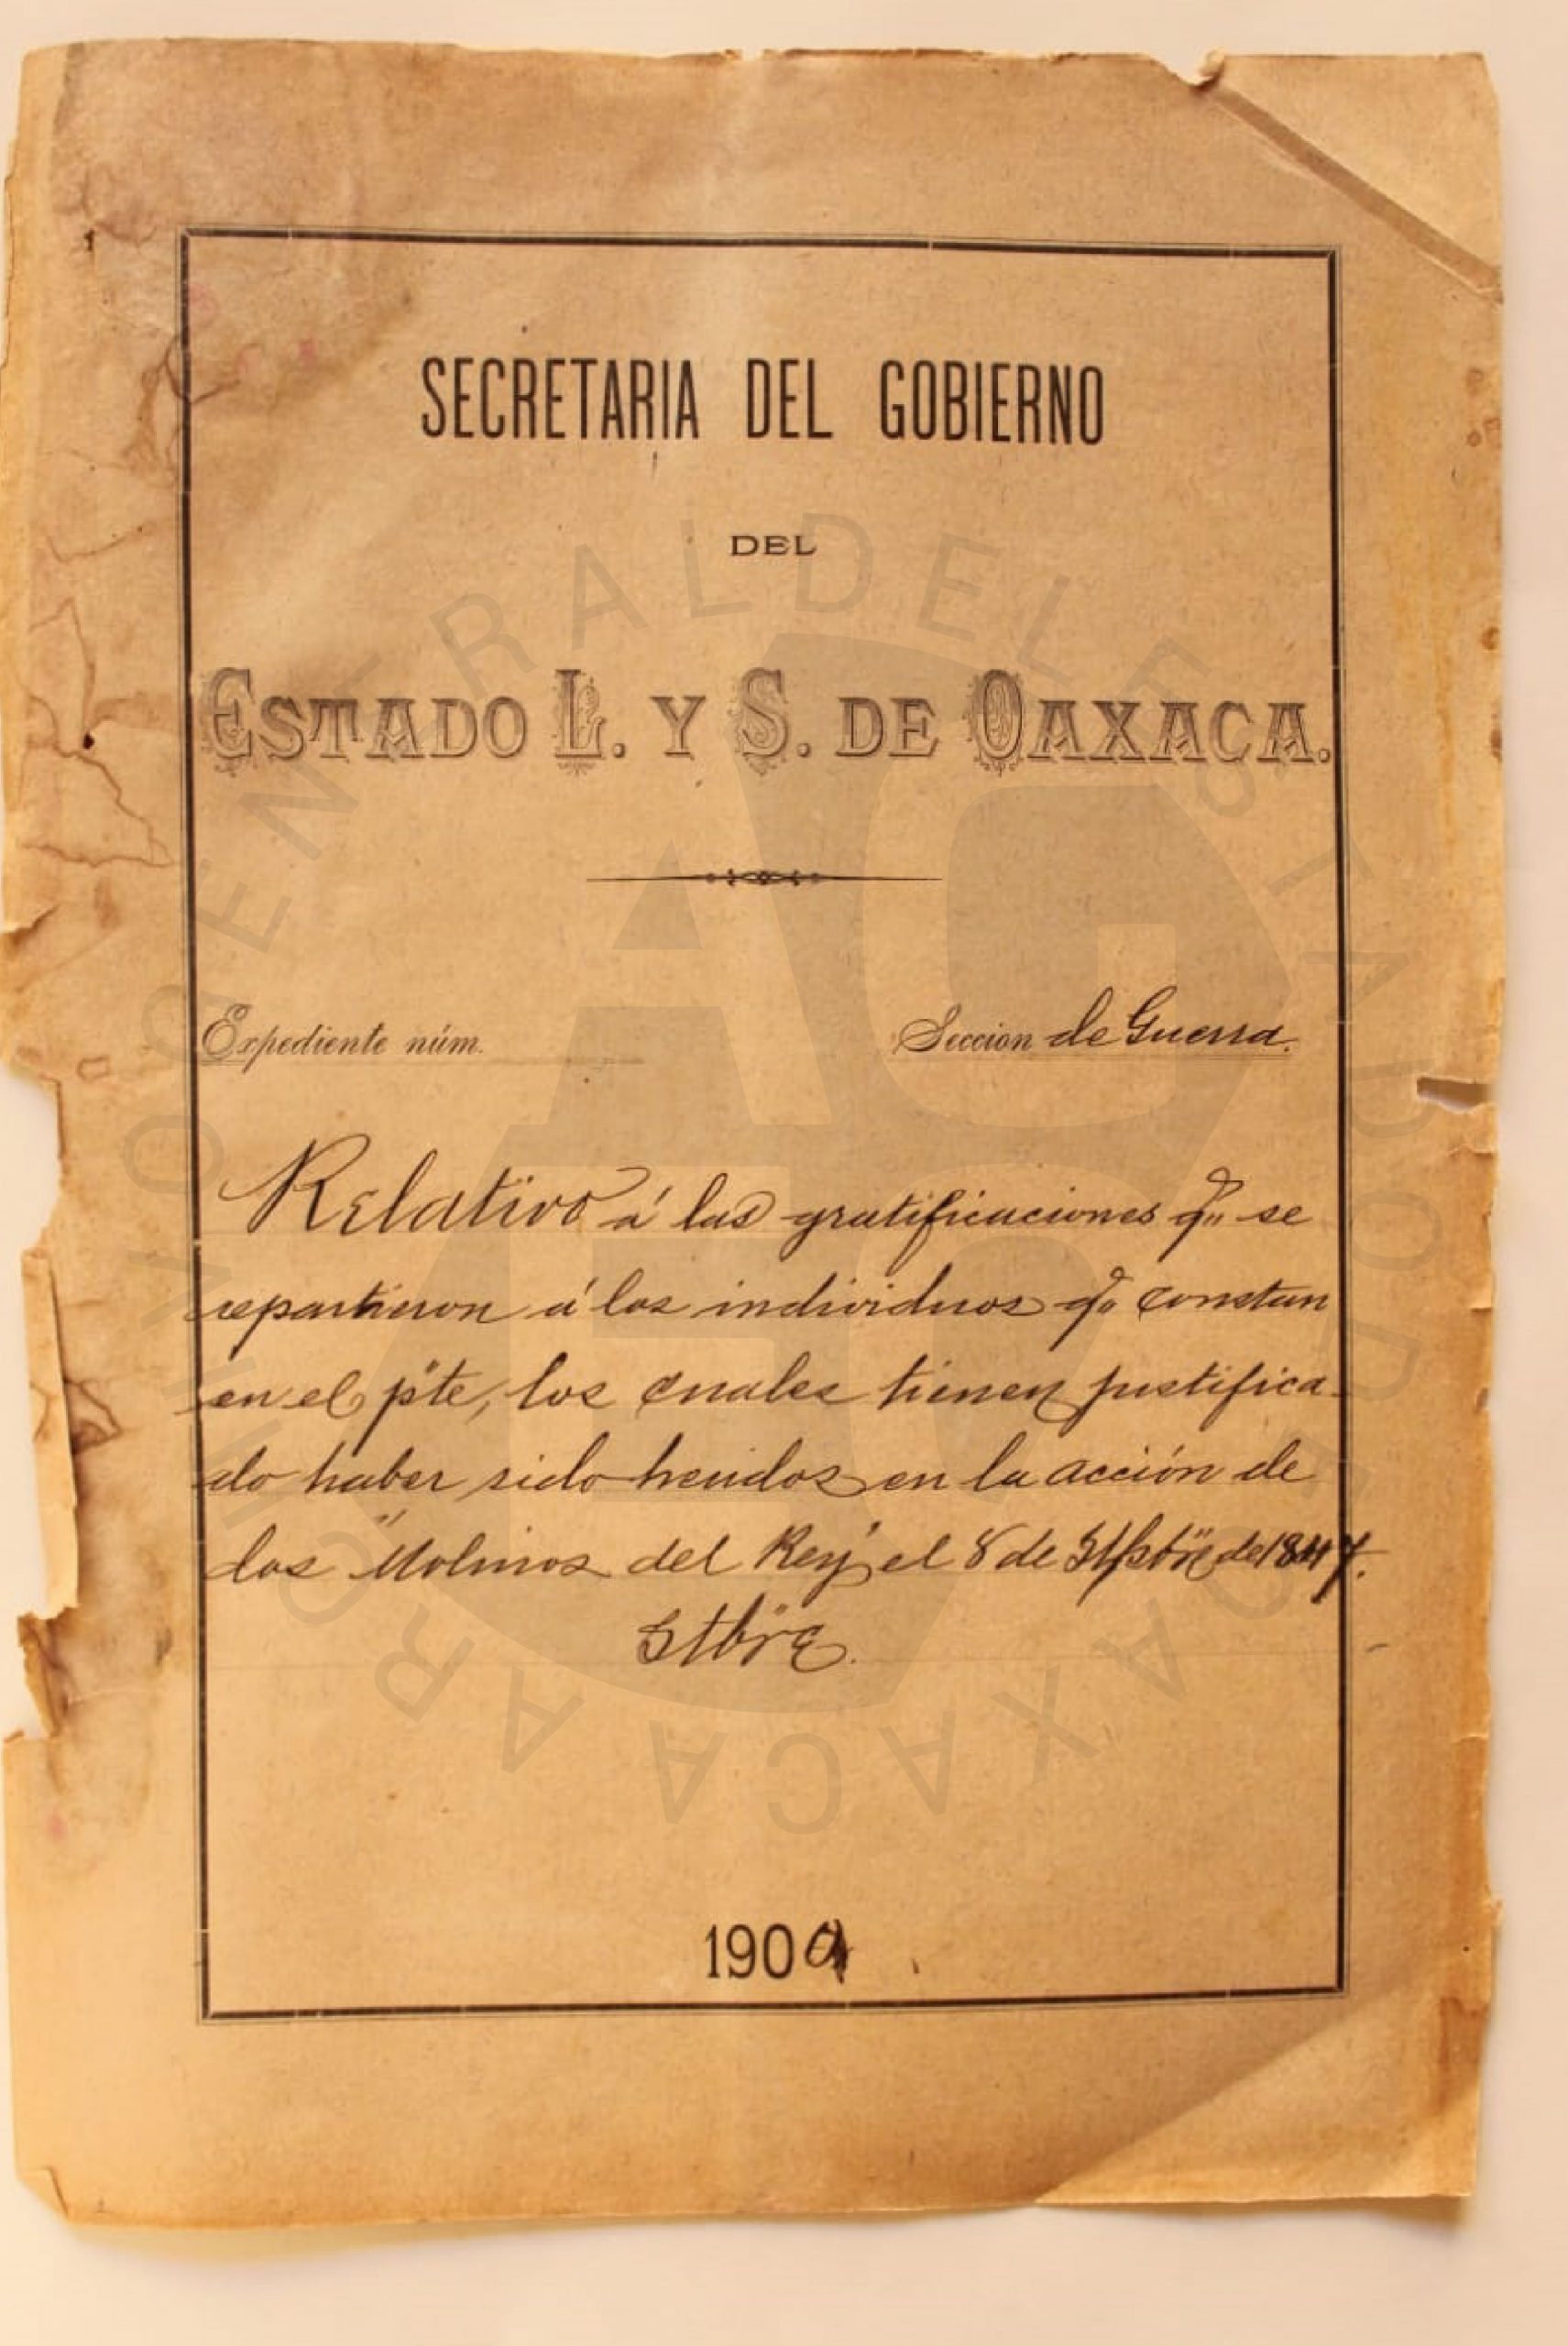 SECRETARIA DEL GOBIERNO
DEL
ESTADO L. Y S. DE OAXACA.
Expediente núm.
Seccion de Guerra.
Relativo á las gratificaciones qe. se
repartieron á los individuos qo constan
en el pte, los cuales tienen justifica-
do haber sido heridos en la acción de
los "Molinos del Rey" el 8 de Stbre de 1847.
Stbre.
1909
ARCHIVO GENERAL DEL ESTADO DE OAXACA